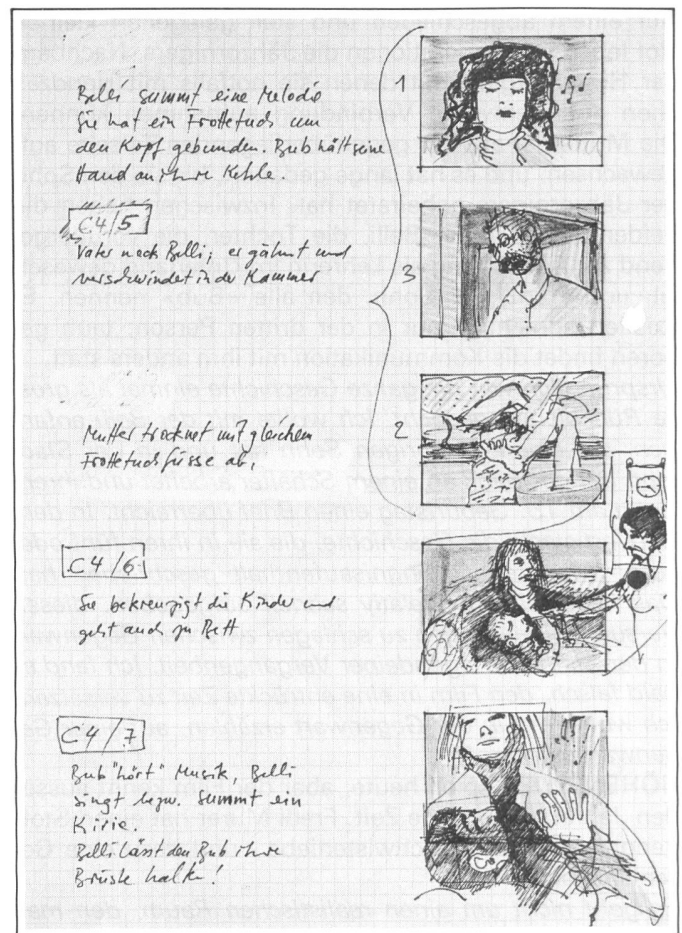 Belli summt eine Melodie
Sie hat ein Frottetuch um
den Kopf gebunden. Bub hält seine
Hand an ihre Kehle.
1
C4/5
Vater nach Belli; er gähnt und
verschwindet in der Kammer
3
Mutter trocknet mit gleichen
Frottetuch füsse ab,
2
C4/6
Sie bekreuzigt die Kinder und
geht auch zu Bett
C4/7
Bub "hört" Musik, Belli
singt bzw. summt ein
Kirie.
Belli lässt den Bub ihre
Brüste halten!